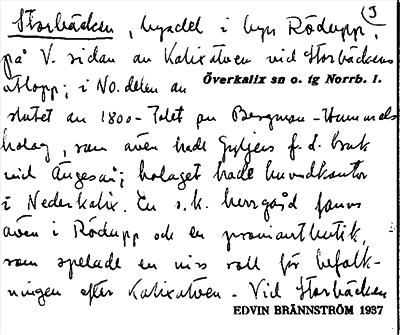 Storbäcken, bydel i byn Rödupp, (J
på V. sidan av Kalixälven vid Storbäckens
utlopp; i NO. delen av
Överkalix sn o. tg Norrb. l.
slutet av 1800-talet en Bergman-Hummels
bolag, som även hade Gyljens f.d. bruk
vid Ängesån; bolaget hade huvudkontor
i Nederkalix. En s.k. herrgård fanns
även i Rödupp och en proviantbutik,
som spelade en viss roll för befolk-
ningen efter Kalixälven. - Vid Storbäcken
EDVIN BRÄNNSTRÖM 1937